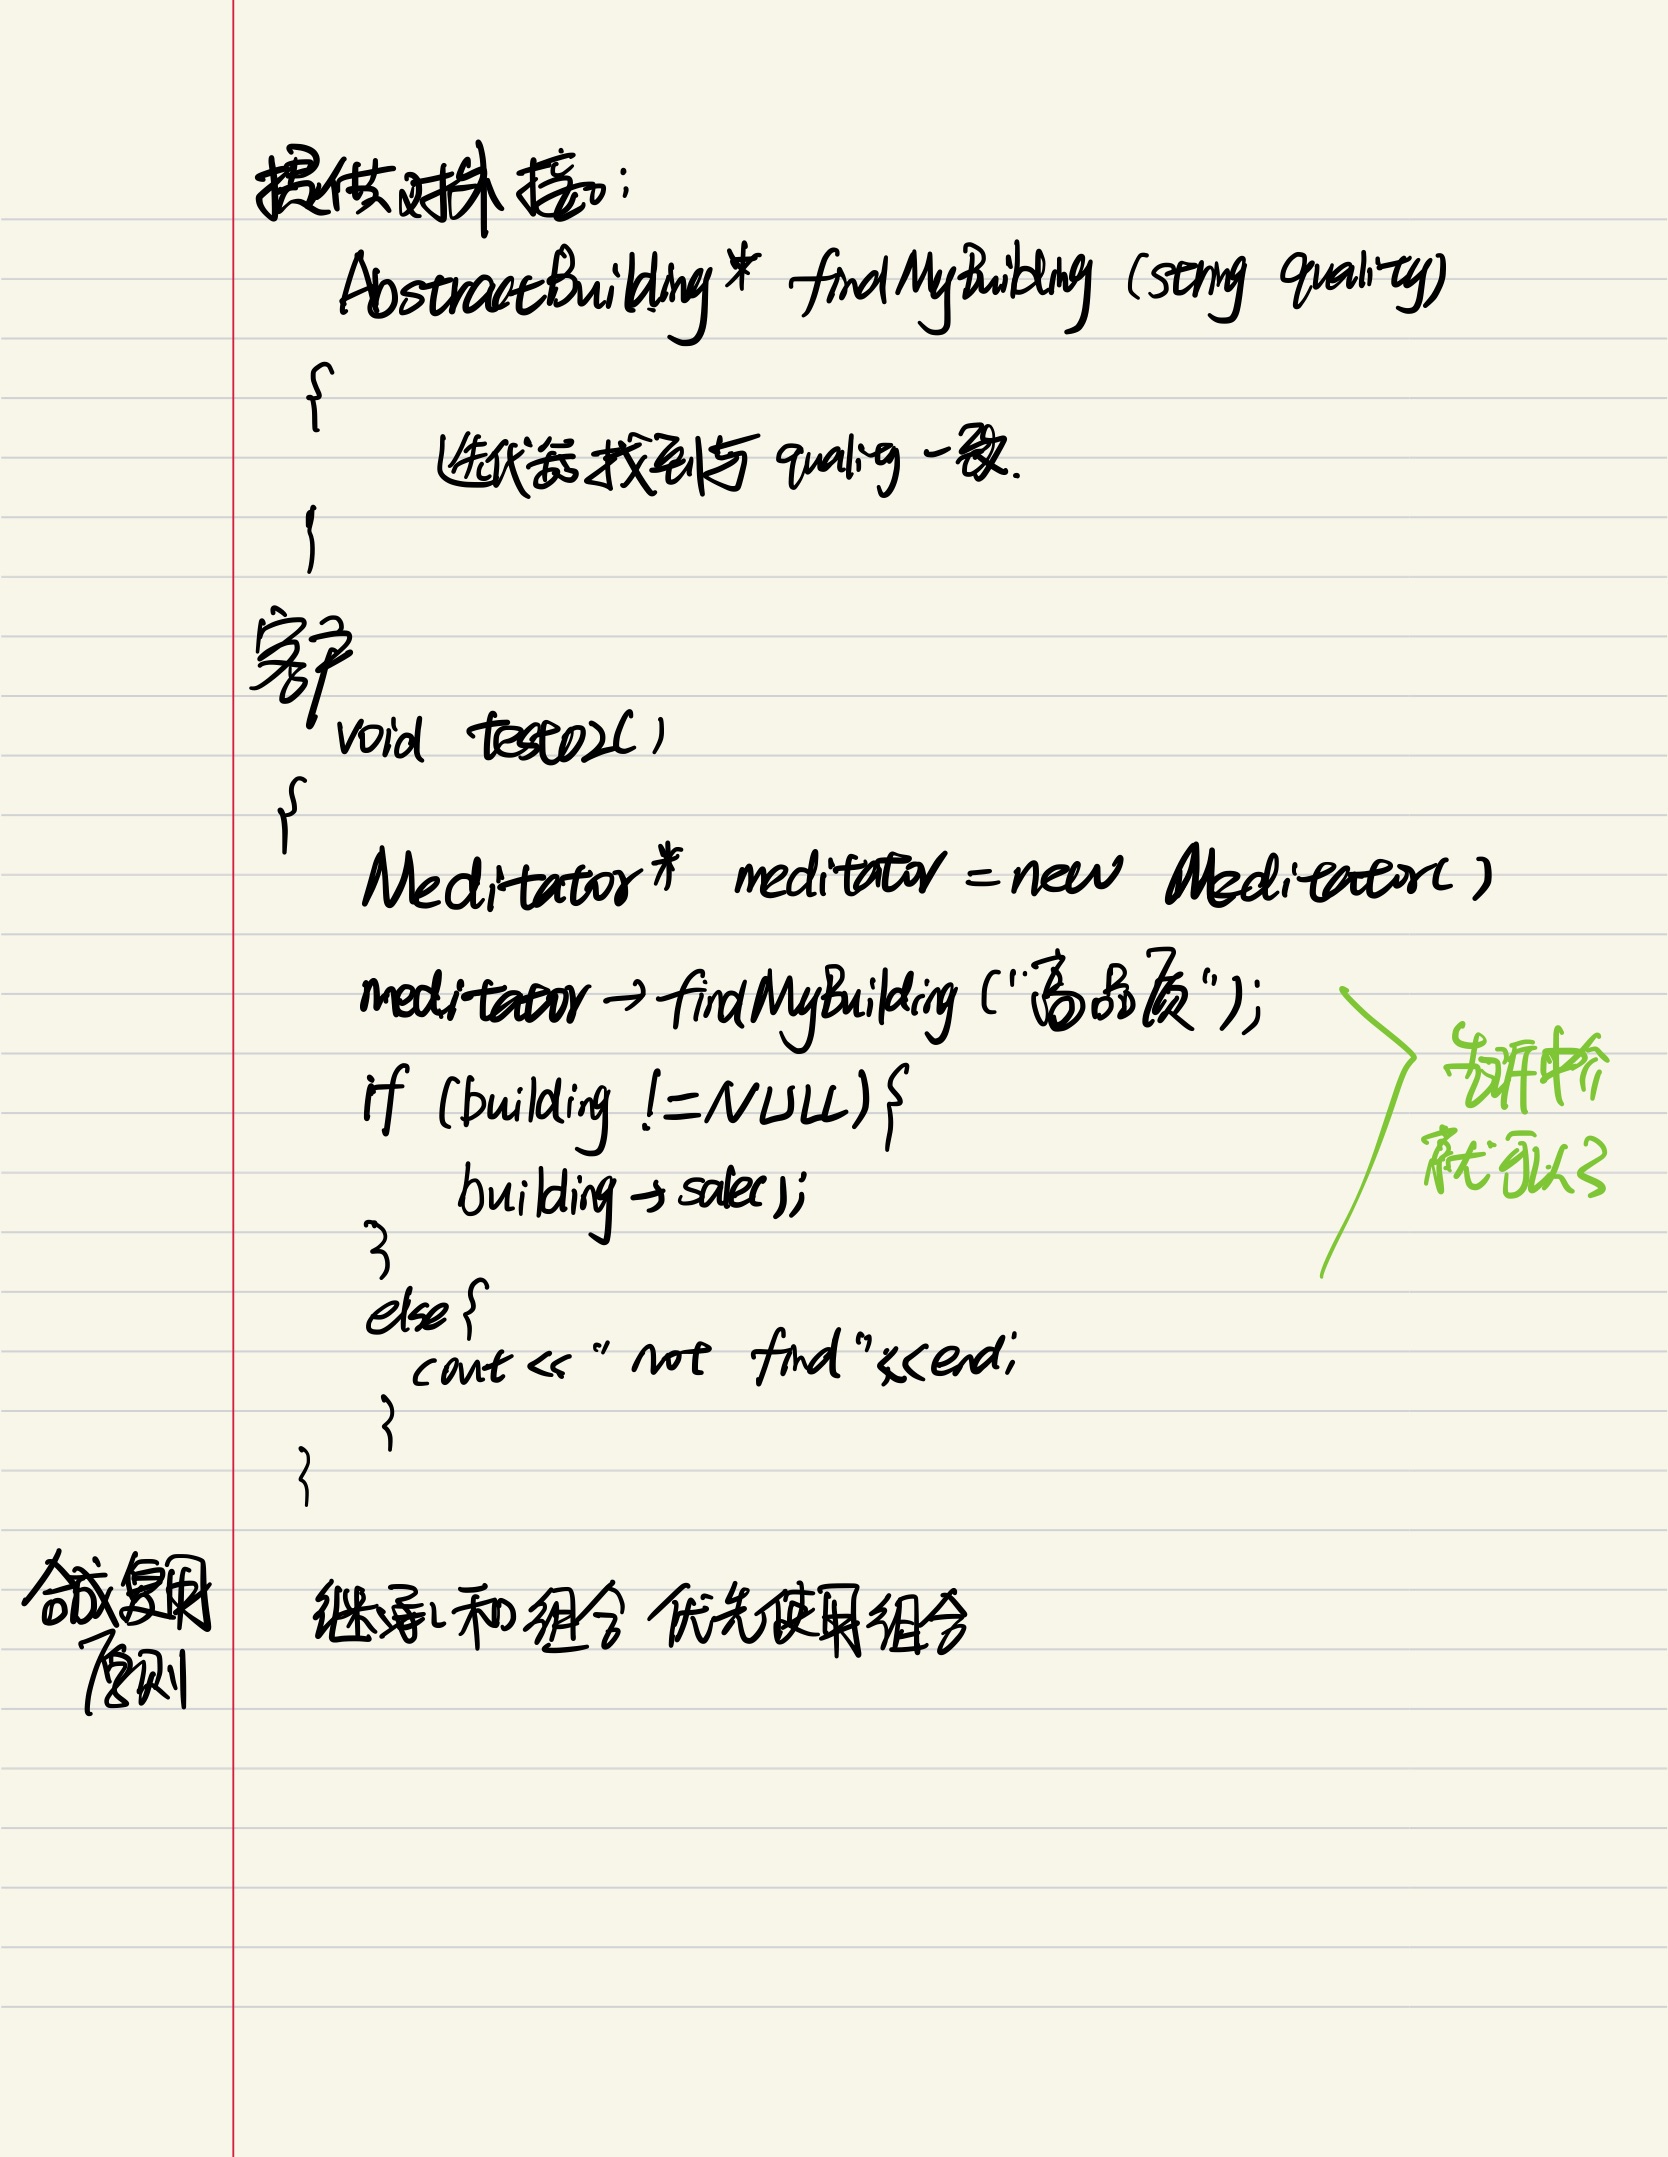 提供对外接口:
AbstractBuilding* findMyBuilding (string quality)
{
迭代器找到与 quality 一致.
}
客户
void test02()
{
Meditator* meditator = new Meditator()
meditator → findMyBuilding ("高品质");
if (building != NULL) {
building → sale();
}
else {
cout << "not find" << end;
}
}
告诉中介
就可以了
合成复用
原则
继承和组合 优先使用组合